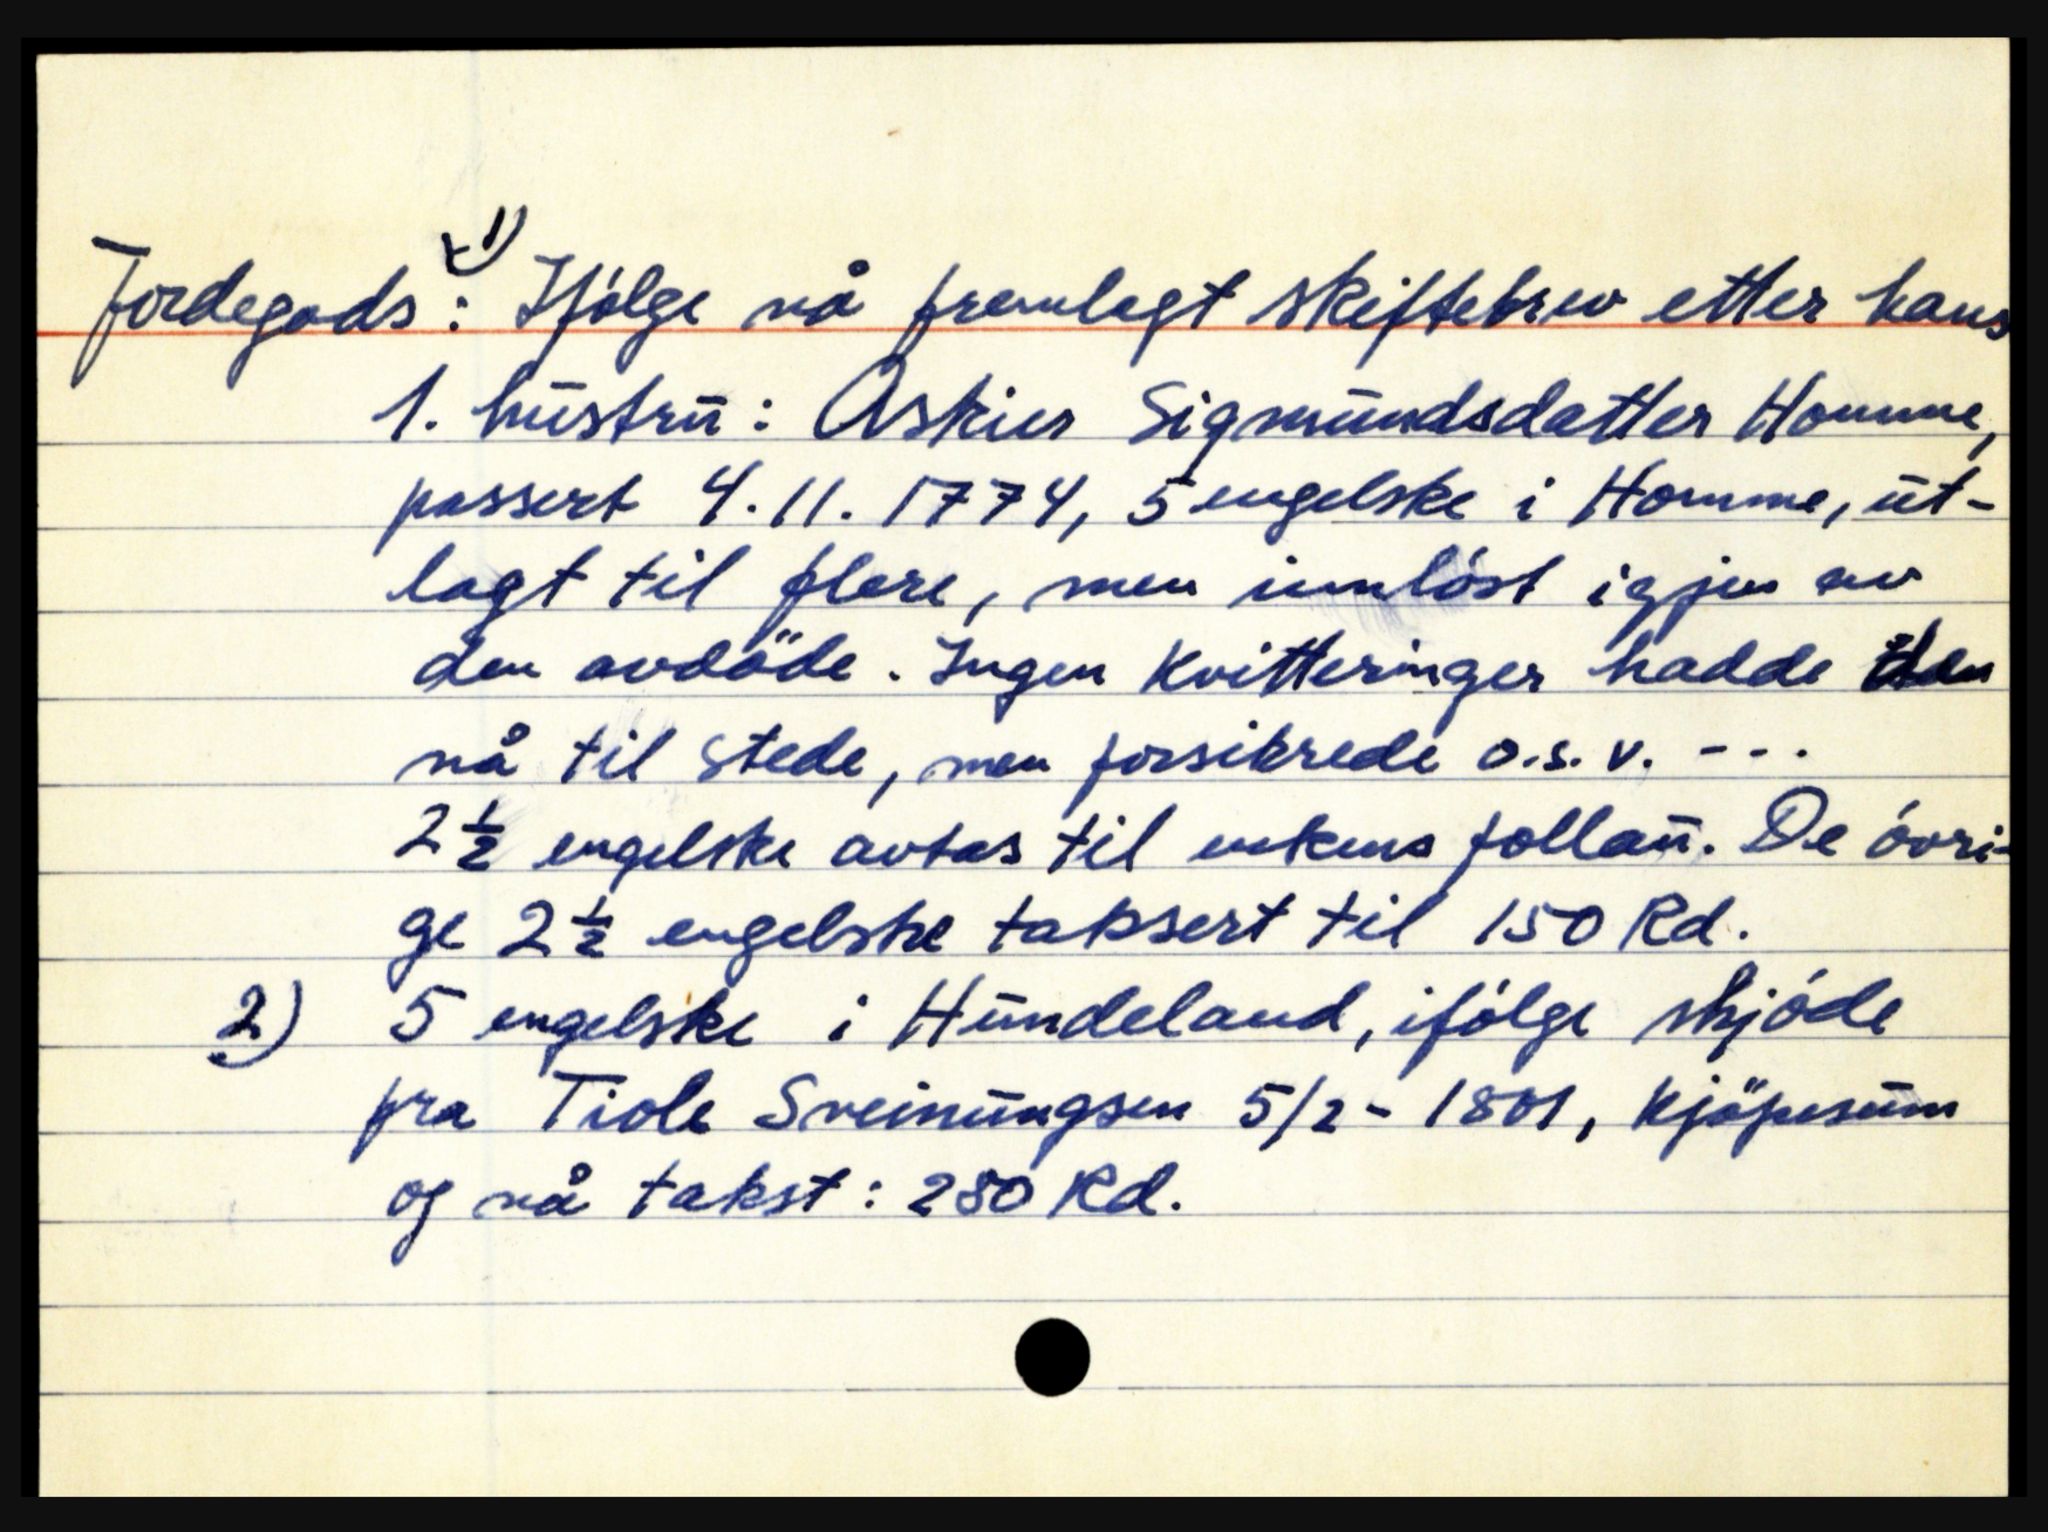 Jordegods: 1) Ifölge nå fremlagt skiftebrev etter hans
1. hustru: Askier Sigmundsdatter Homme,
passert 4.11.1774, 5 engelske i Homme, ut-
lagt til flere, men innlöst igjen av
den avdöde. Ingen kvitteringer hadde
nå til stede, men forsikrede o.s.v. ---
2½ engelske avtas til enkens follau. De övri-
ge 2½ engelske taksert til 150 Rd.
2) 5 engelske i Hundeland, ifölge skjöde
fra Tiole Sveinungsen 5/2-1801, kjöpesum
og nå takst: 280 Rd.